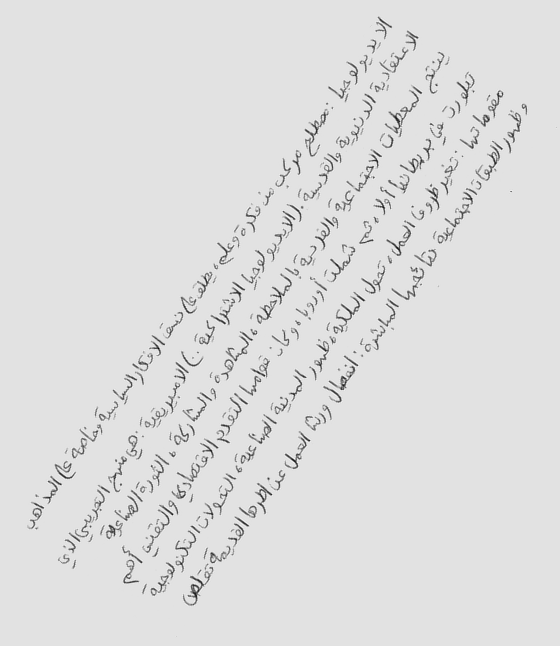 الايديولوجيا : مصطلح مركب من فكرة وعلم، يطلق على نسق الافكار السياسية وخاصة على المذاهب
الاعتقادية الدنيوية والقدسية . (الايديولوجيا الاشتراكية .) الامبريقية : هي منهج التجريبي الذي
ينتج المعطيات الاجتماعية والفردية بالملاحظة ، المشاهدة والمشاركة ، الثورة الصناعية
تبلورت في بريطانيا أولا ، ثم شملت أوروبا ، وكان قوامها التقدم الاقتصادي والتقني أهم
مقوماتها : تغير ظروف العمل ، تحول الملكية ، ظهور المدينة الصناعية ، التحولات التكنولوجية
وظهور الطبقات الاجتماعية نتائجها المباشرة : انفصال ورشة العمل عن اطرها القديمة تقلص